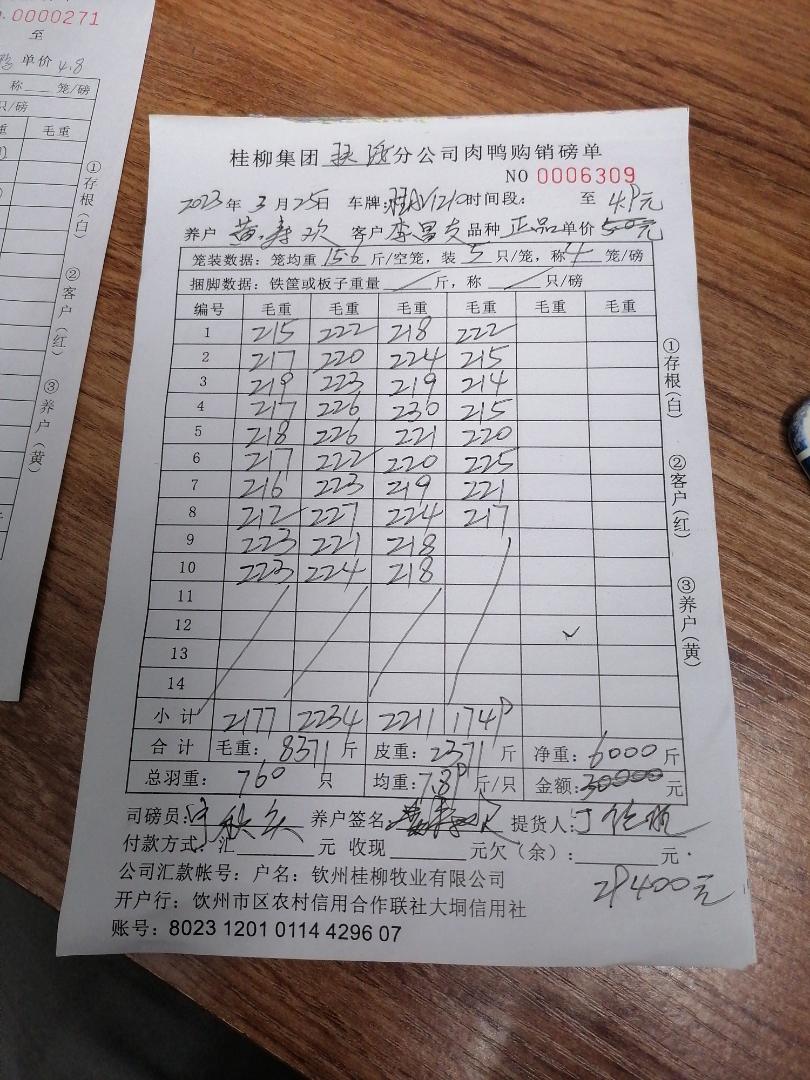 0000271
至
单价 4.8
称 笼/磅
只/磅
重 毛重
①存根(白)
②客户(红)
③养户(黄)
桂柳集团 分公司肉鸭购销磅单
NO 0006309
2023年3月25日 车牌: 时间段: 至 4.9元
养户 黄寿欢 客户 李昌友 品种 正品 单价 5.0元
笼装数据:笼均重 15.6 斤/空笼,装 5 只/笼,称 4 笼/磅
捆脚数据:铁筐或板子重量 / 斤,称 / 只/磅
编号 毛重 毛重 毛重 毛重 毛重 毛重
1 215 222 218 222
2 217 220 224 215
3 219 223 219 214
4 217 226 230 215
5 218 226 221 220
6 217 222 220 225
7 216 223 219 221
8 212 227 224 217
9 223 221 218
10 223 224 218
11
12
13
14
小计 2177 2234 2211 1749
合计 毛重: 8371 斤 皮重: 2371 斤 净重: 6000 斤
总羽重: 760 只 均重: 7.89 斤/只 金额: 30000 元
司磅员: 养户签名: 提货人:
付款方式:汇 元 收现 元欠(余): 元.
29400元
公司汇款帐号:户名:钦州桂柳牧业有限公司
开户行:钦州市区农村信用合作联社大垌信用社
账号:8023 1201 0114 4296 07
①存根(白)
②客户(红)
③养户(黄)